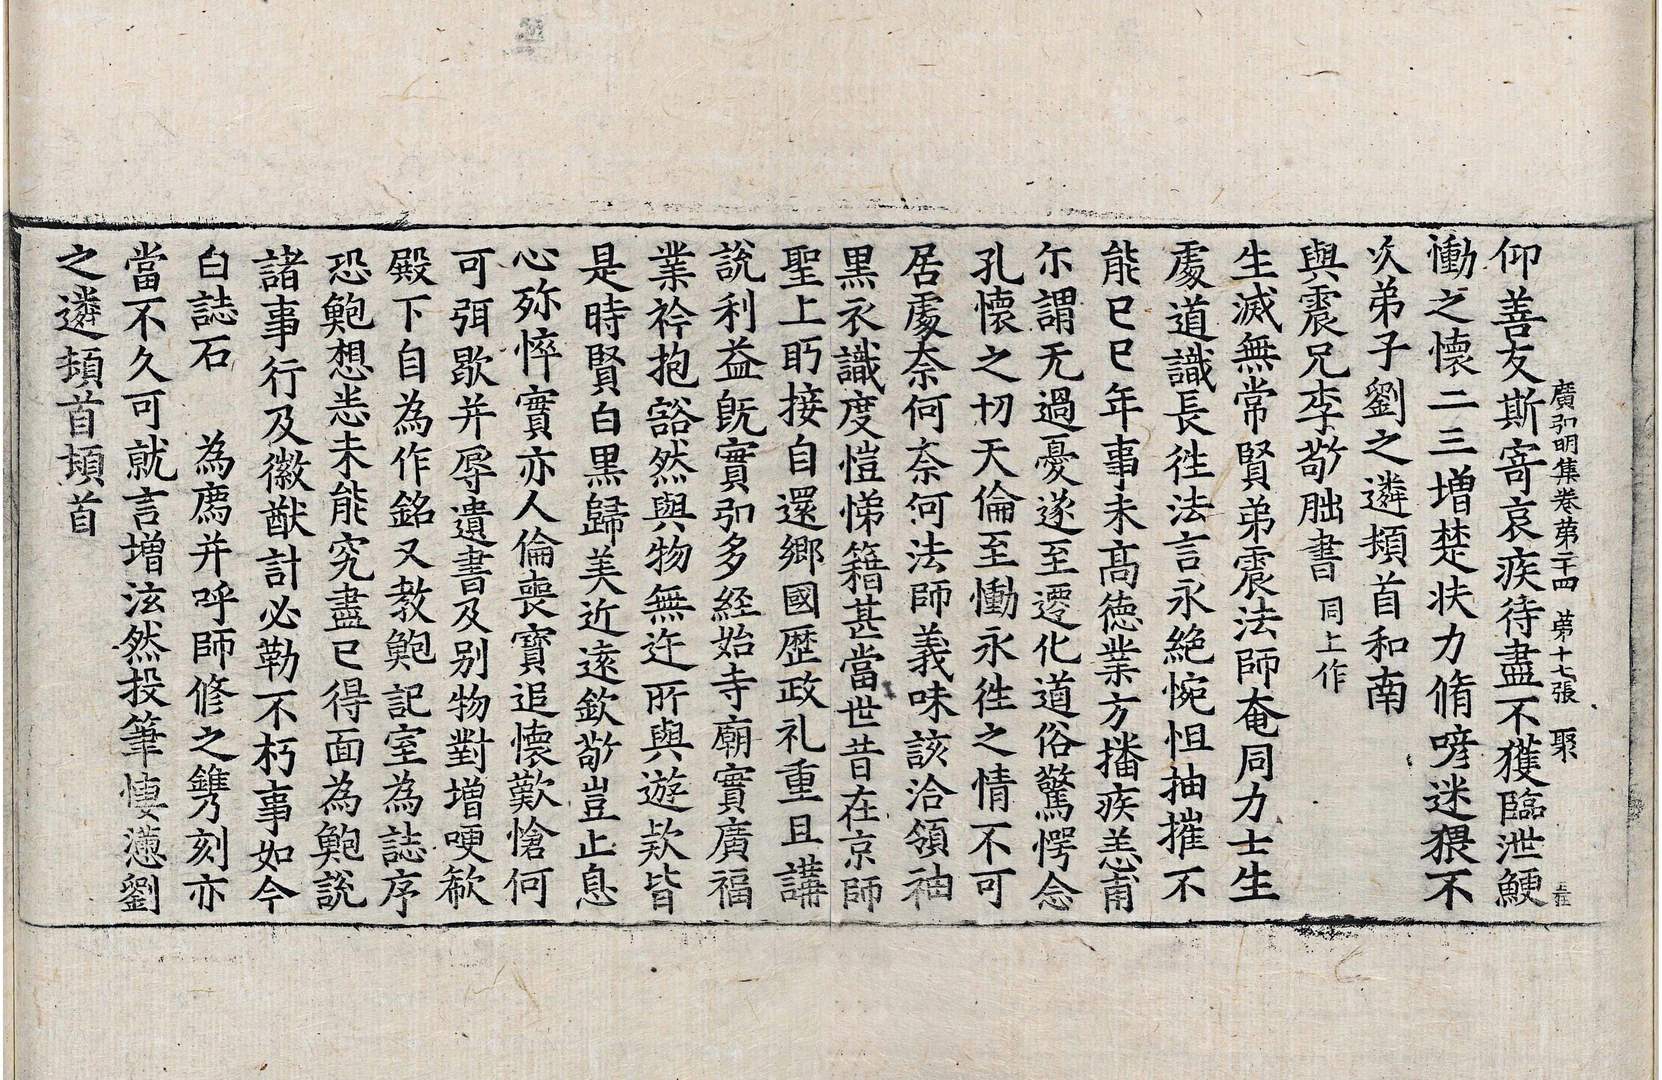 廣弘明集卷第二十四 第十七張 聚
仰善友斯寄哀疾待盡不獲臨泄鯁
慟之懷二三增楚扶力脩喭迷猥不
次弟子劉之遴頓首和南
與震兄李敬朏書 同上作
生滅無常賢弟震法師奄同力士生
處道識長徃法言永絕惋怛抽摧不
能已已年事未高德業方播疾恙甫
尒謂无過憂遂至遷化道俗驚愕念
孔懷之切天倫至慟永徃之情不可
居處奈何奈何法師義味該洽領袖
黑衣識度愷悌籍甚當世昔在京師
聖上眄接自還鄉國歷政礼重且講
說利益旣實弘多經始寺廟實廣福
業衿抱豁然與物無迕所與遊款皆
是時賢白黑歸美近遠欽敬豈止息
心殄悴實亦人倫喪寶追懷歎愴何
可弭歇并辱遺書及别物對增哽欷
殿下自為作銘又教鮑記室為誌序
恐鮑想悉未能究盡已得面為鮑說
諸事行及徽猷計必勒不朽事如今
白誌石 為廌并呼師修之鐫刻亦
當不久可就言增泫然投筆悽懣劉
之遴頓首頓首